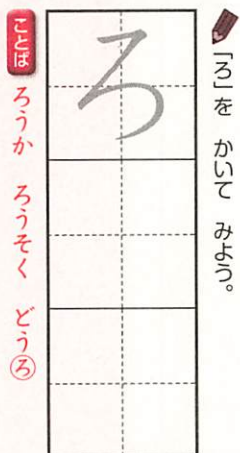 「ろ」を かいて みよう。
ろ
ことば ろうか ろうそく どうろ